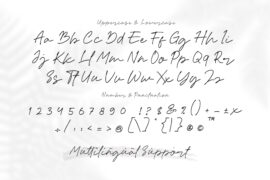 Uppercase & Lowercase
Aa Bb Cc Dd Ee Ff Gg Hh Ii
Jj Kk Ll Mm Nn Oo Pp Qq Rr
Ss Tt Uu Vv Ww Xx Yy Zz
Number & Punctuation
1 2 3 4 5 6 7 8 9 0 ! ? $ & ( ) + - ± ×
Multilingual Support